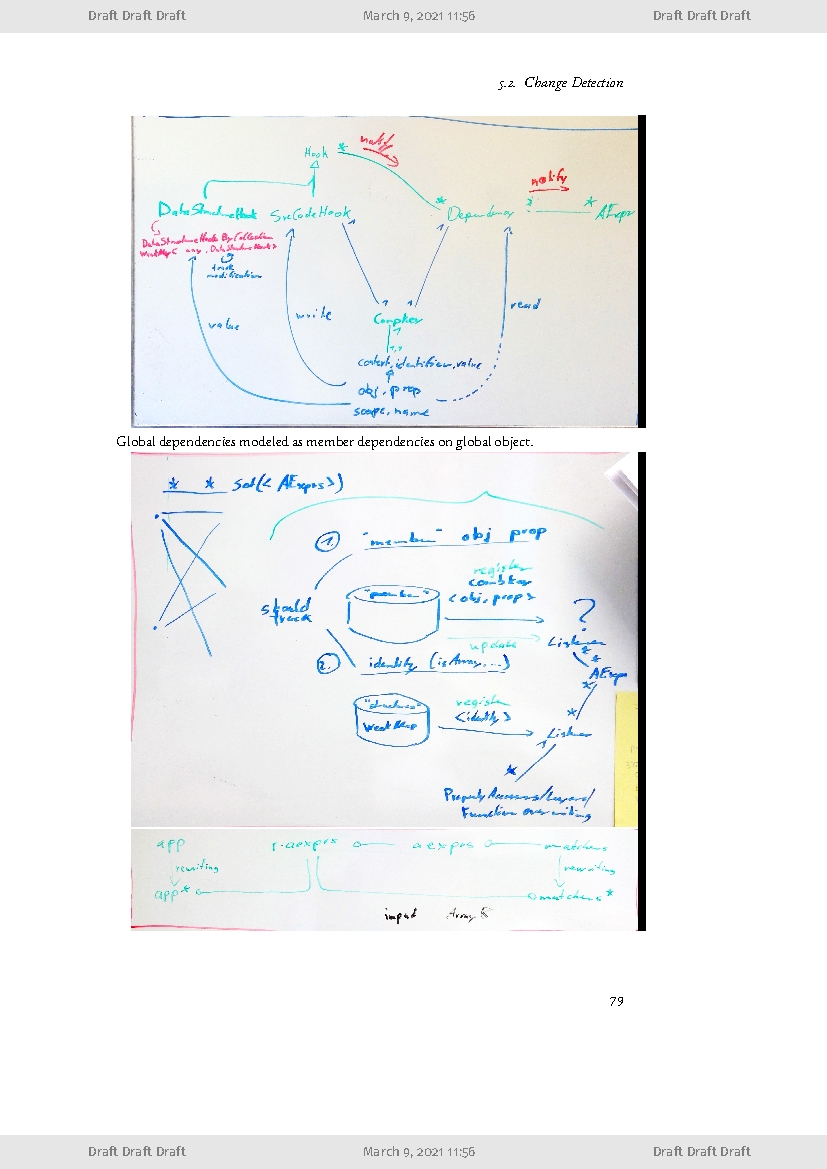 Draft Draft Draft March 9, 2021 11:56 Draft Draft Draft
5.2. Change Detection
Hook * notify
* notify
DataStructureHook SrcCodeHook Dependency * AExpr
DataStructureHooks By Collection
WeakMap< any, DataStructureHook>
track
modification
value write read
CompKey
1,1
context, identifier, value
obj, prop
scope, name
Global dependencies modeled as member dependencies on global object.
* * Set(< AExprs >)
1. "member" obj prop
register
combkey
<obj, prop>
"member"
should
track
?
update Listener
2. identity (isArray, ...)
* *
AExpr
*
"structure" register
WeakMap <identity> *
Listener
*
Property Accessors/Layers/
Function overwriting
app r-aexprs aexprs matchers
rewriting rewriting
app* matchers*
import Array
79
Draft Draft Draft March 9, 2021 11:56 Draft Draft Draft